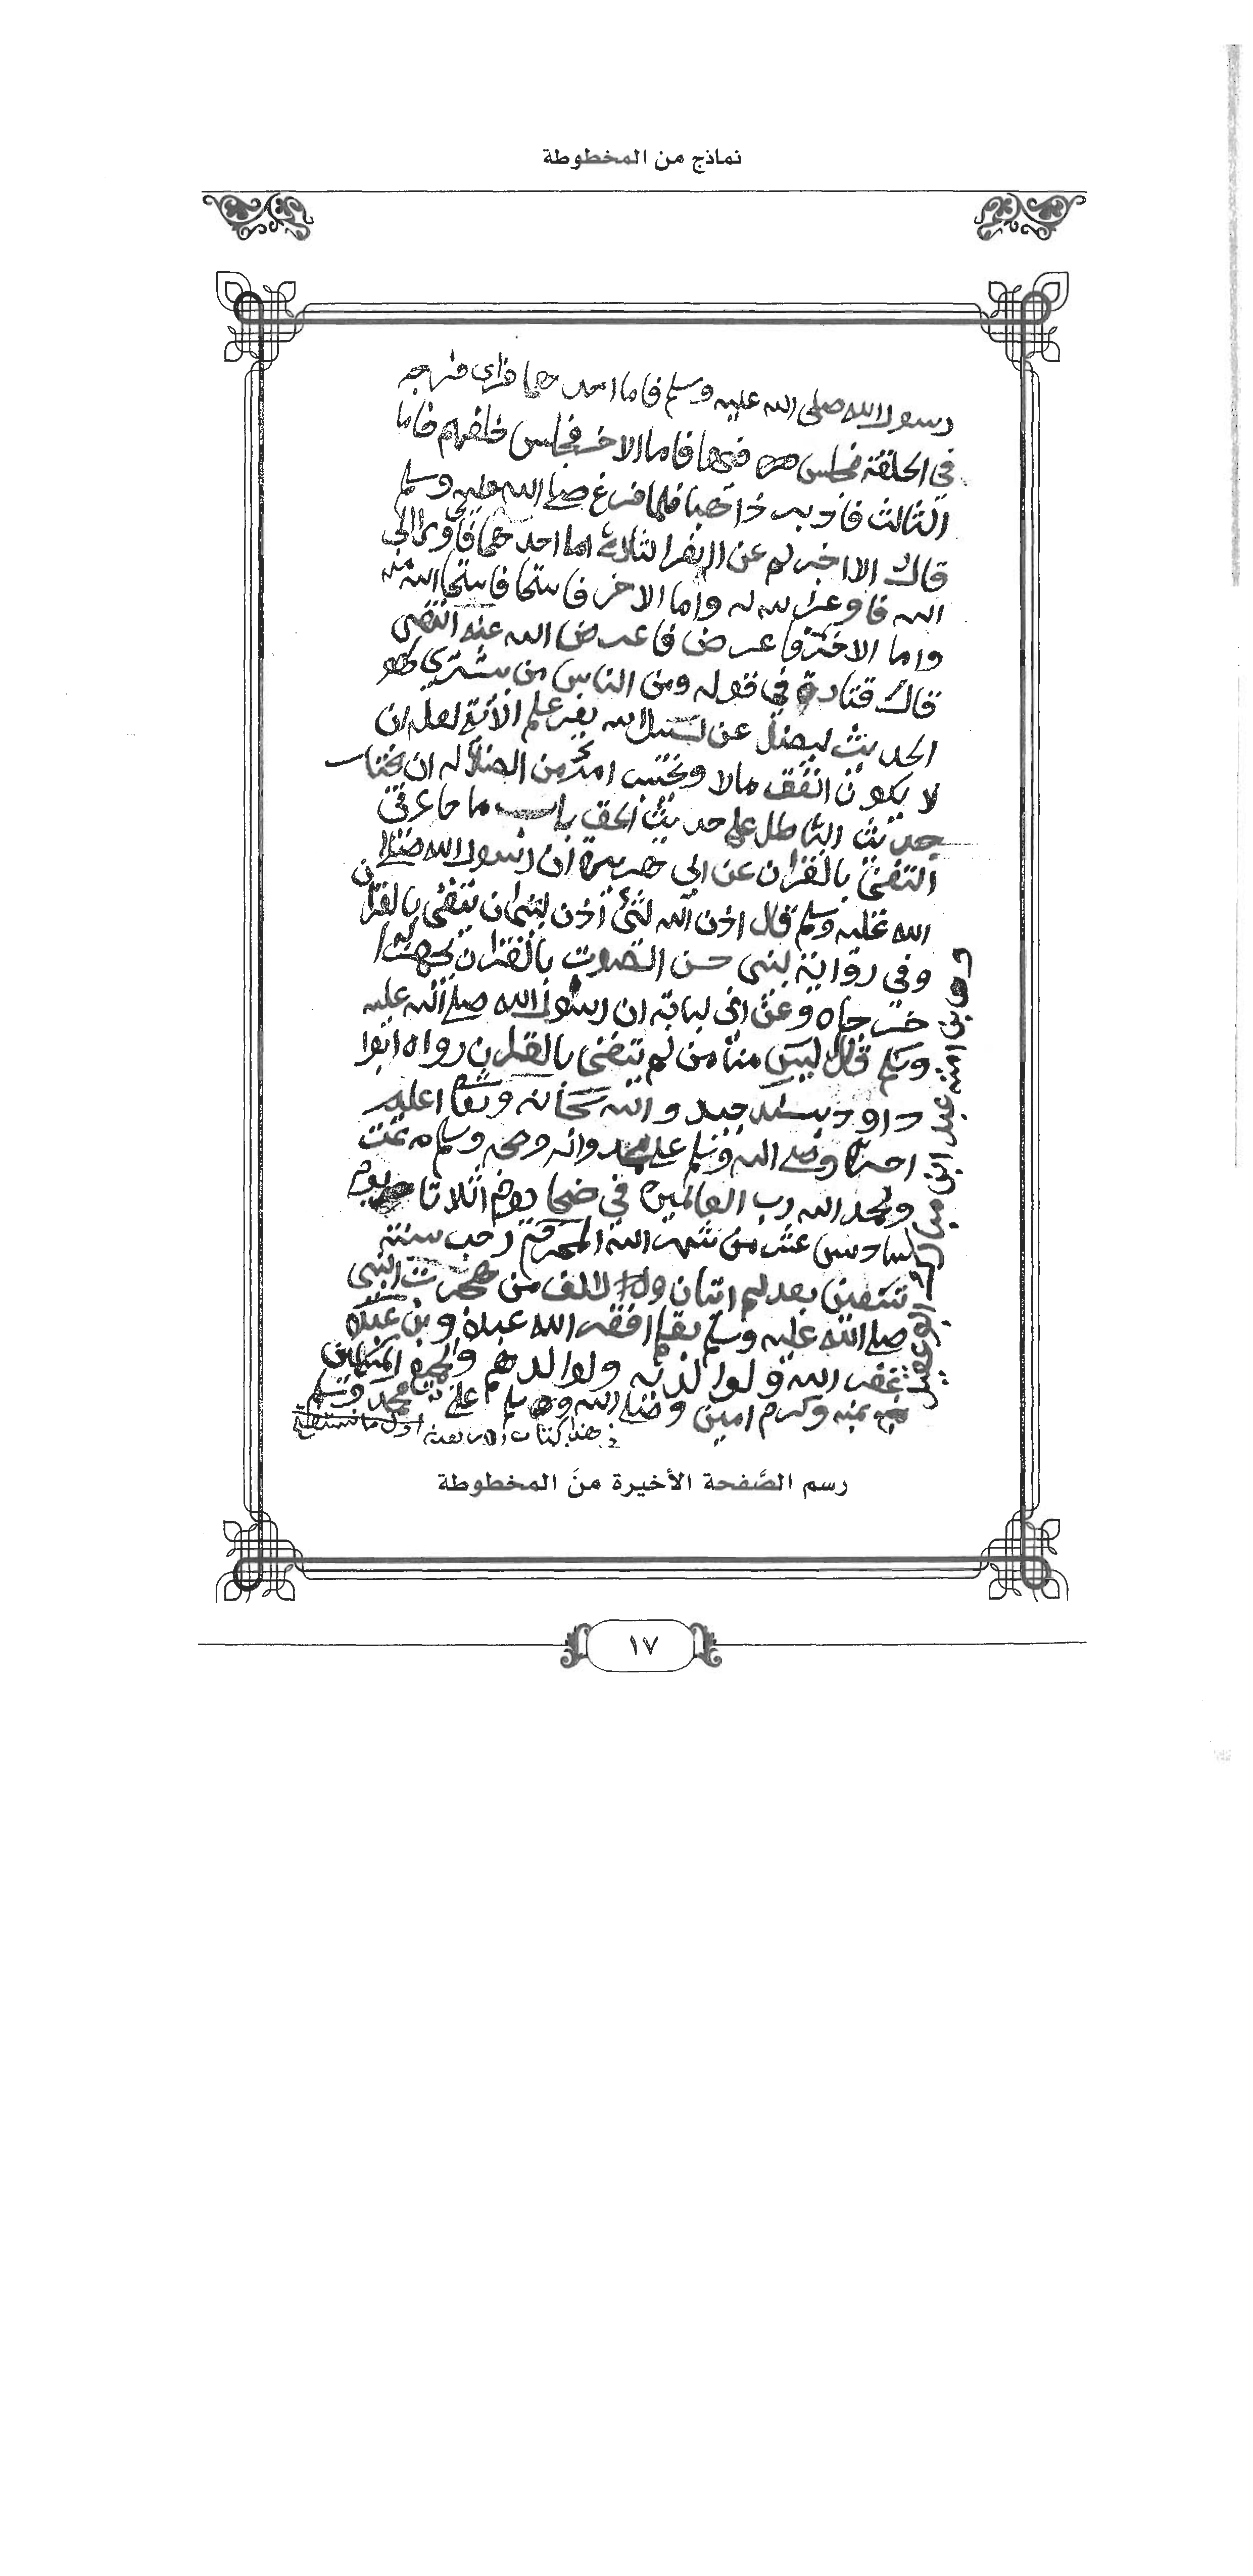 نماذج من المخطوطة
رسول الله صلى الله عليه وسلم فاما احدهما فراى فرجه
في الحلقة فجلس فيها فاما الاخر فجلس خلفهم فاما
الثالث فادبر ذاهبا فلما فرغ صلى الله عليه وسلم
قال الا اخبركم عن النفر الثلاثة اما احدهما فاوى الى
الله فاوى الله له واما الاخر فاستحا فاستحا الله منه
واما الاخر فاعرض فاعرض الله عنه انتهى
قال قتادة في قوله ومن الناس من يشتري لهو
الحديث ليضل عن سبيل الله بغير علم الآية لعله ان
لا يكون انفق مالا وبحسب امرء من الضلاله ان يختار
حديث الباطل على حديث الحق باب ما جاء في
التغني بالقران عن ابي هريرة ان رسول الله صلى
الله عليه وسلم قال اذن الله لشئ اذن لنبي ان يتغنى بالقران
وفي رواية لنبي حسن الصوت بالقران يجهر به
خرجاه وعن ابي لبابه ان رسول الله صلى الله عليه
وسلم قال ليس منا من لم يتغنى بالقران رواه ابوا
داود بسند جيد والله سبحانه وتعا اعلم
وصلى الله وسلم على محمد واله وصحبه وسلم تمت
والحمد لله رب العالمين في ضحا يوم الثلاثا يوم
سادس عشر من شهر الله رجب سنة
بعد اثنان والالف من هجرت النبي
صلى الله عليه وسلم افقر الله عبده وبن عبده
غفر الله ولوالديه ولوالدهم والجميع المسلمين
بمنه وكرم امين وصلى الله وسلم على محمد وسلم
رسم الصَّفحة الأخيرة منَ المخطوطة
١٧